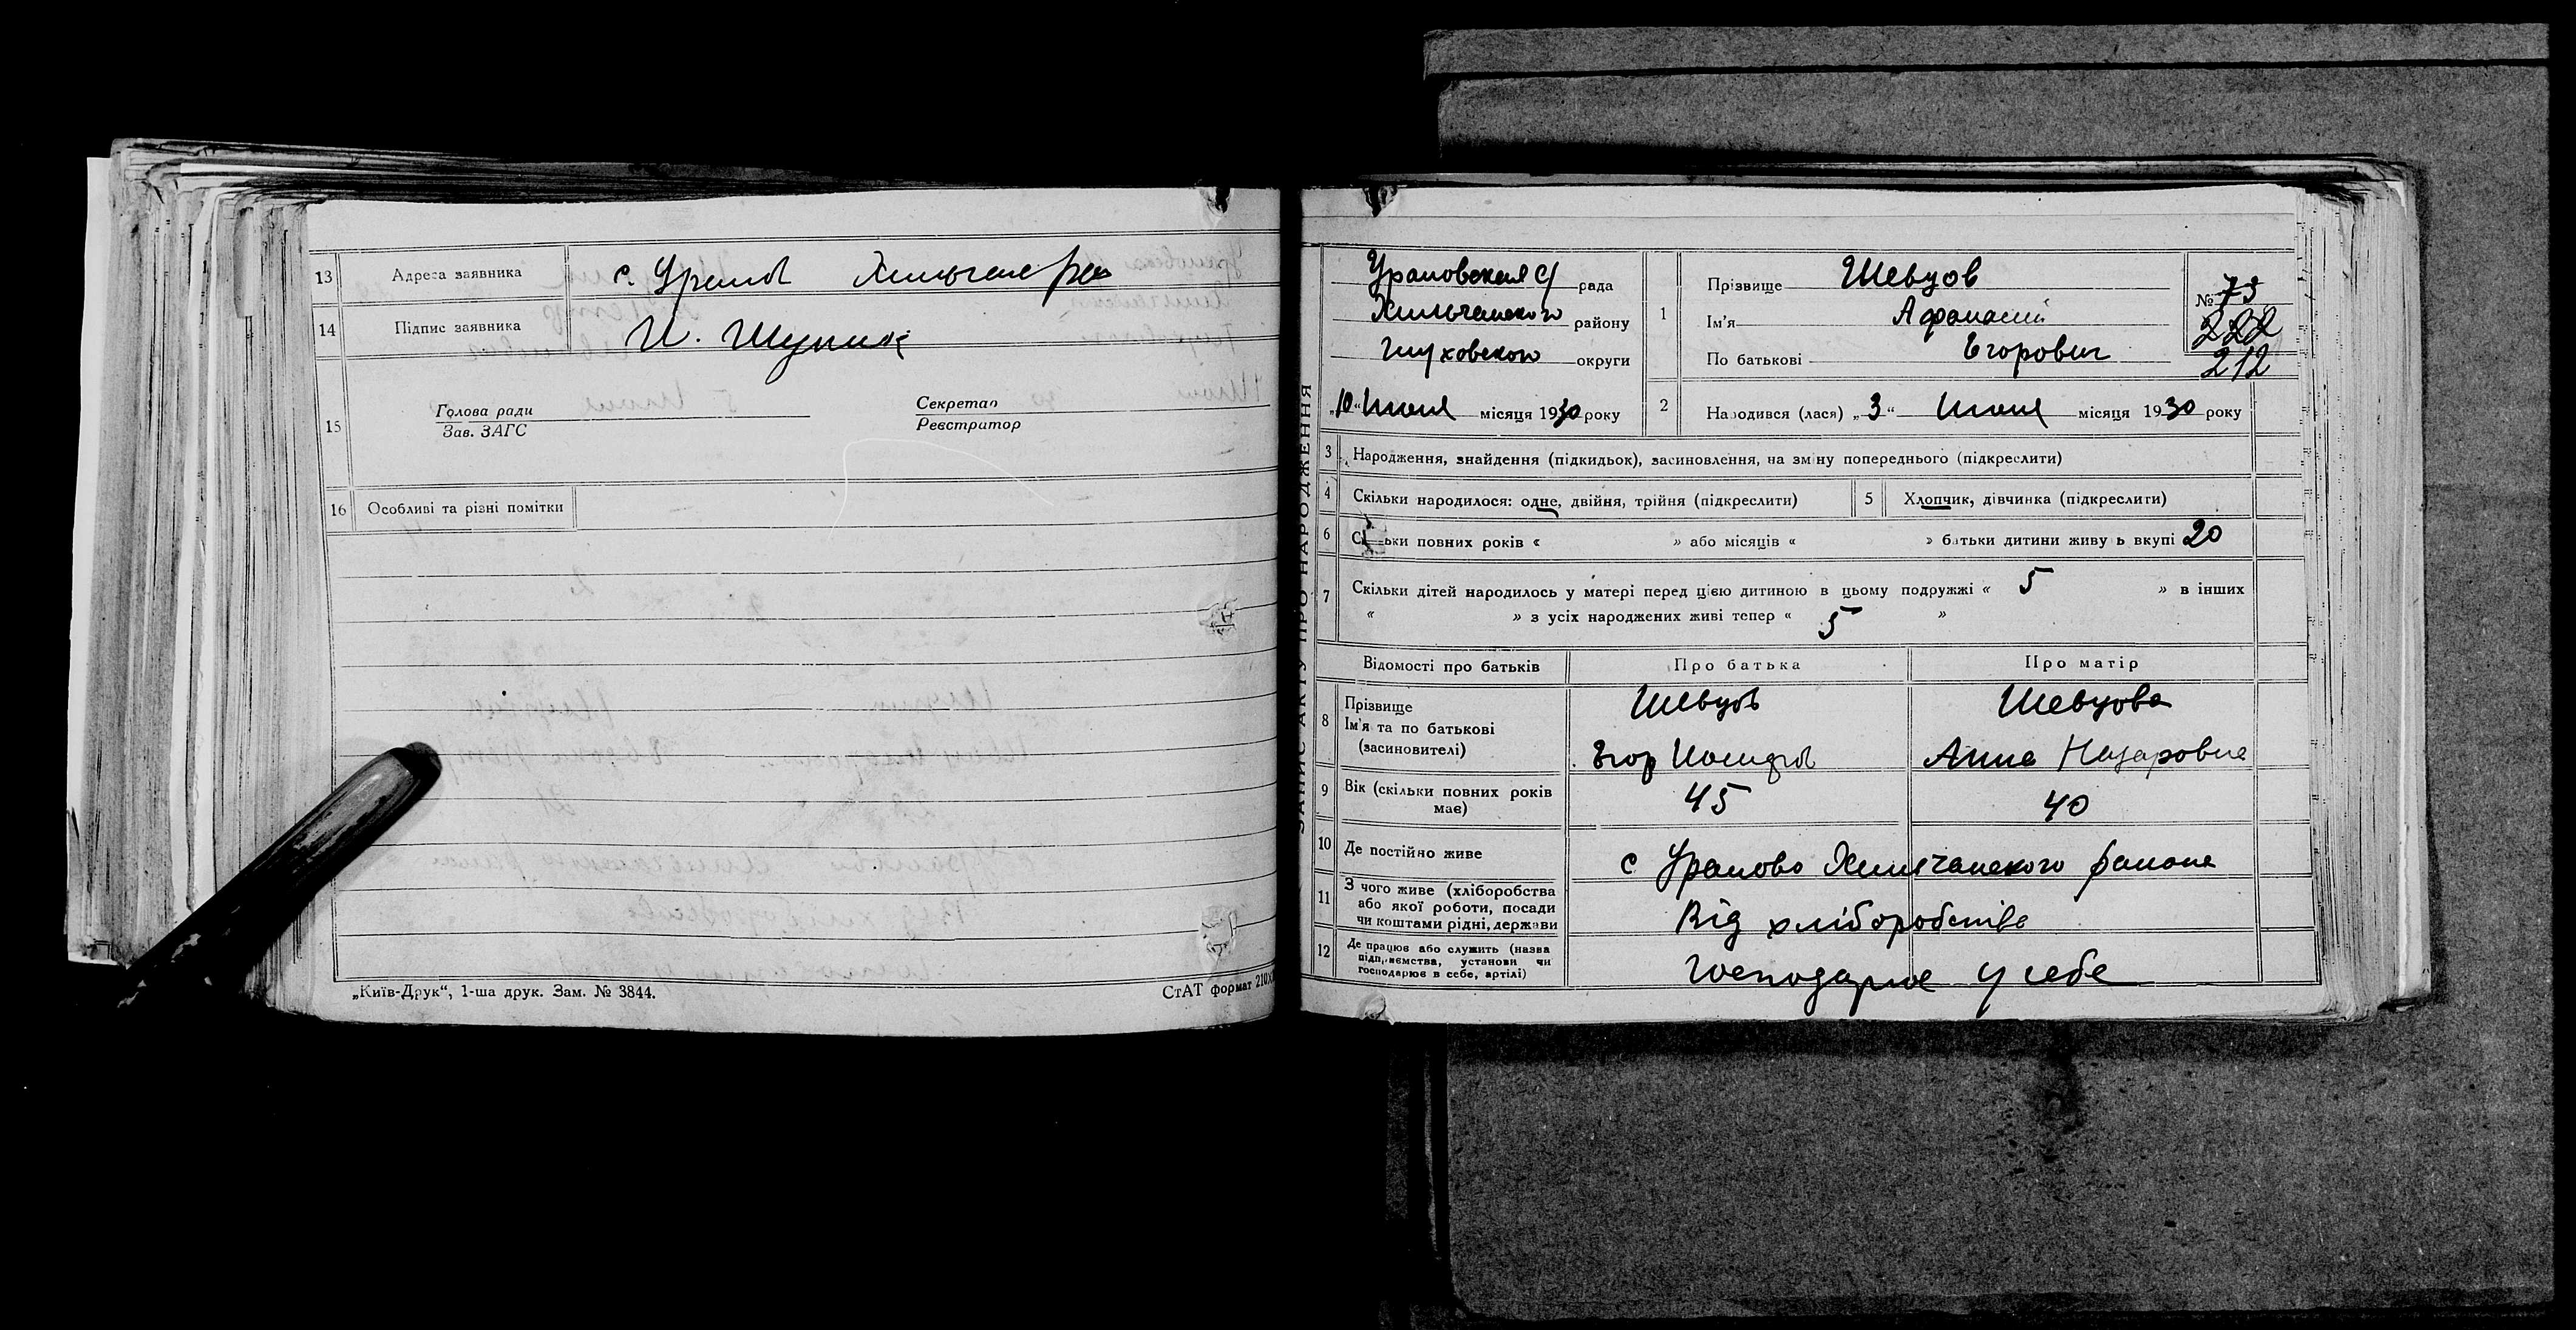 13 Адреса заявника с. Уралов Хильчане ра
14 Підпис заявника И. Шупик
15 Голова ради
Зав. ЗАГС
Секретар
Реєстратор
16 Особливі та різні помітки
„Київ-Друк“, 1-ша друк. Зам. № 3844.
СтАТ формат 210х
ЗАПИС АКТУ ПРО НАРОДЖЕННЯ
рада
Хильчанского району
Глуховского округи
„10“ Июня місяця 1930 року
1 Прізвище Шевцов
Ім'я Афанасий
По батькові Егорович
№ 73
222
212
2 Народився (лася) „3“ Июня місяця 1930 року
3 Народження, знайдення (підкидьок), засиновлення, на зміну попереднього (підкреслити)
4 Скільки народилося: одне, двійня, трійня (підкреслити)
5 Хлопчик, дівчинка (підкреслити)
6 Скільки повних років « » або місяців « » батьки дитини живуть вкупі 20
7 Скільки дітей народилось у матері перед цією дитиною в цьому подружжі « 5 » в інших
« » з усіх народжених живі тепер « 5 »
Відомості про батьків Про батька Про матір
8 Прізвище Шевцов Шевцова
Ім'я та по батькові
(засиновителі) Егор Иосифов Анна Назаровна
9 Вік (скільки повних років
має) 45 40
10 Де постійно живе с Уралово Хильчанского района
11 З чого живе (хліборобства
або якої роботи, посади
чи коштами рідні, держави Від хліборобства
12 Де працює або служить (назва
підприємства, установи чи
господарює в себе, артілі) Господарює у себе